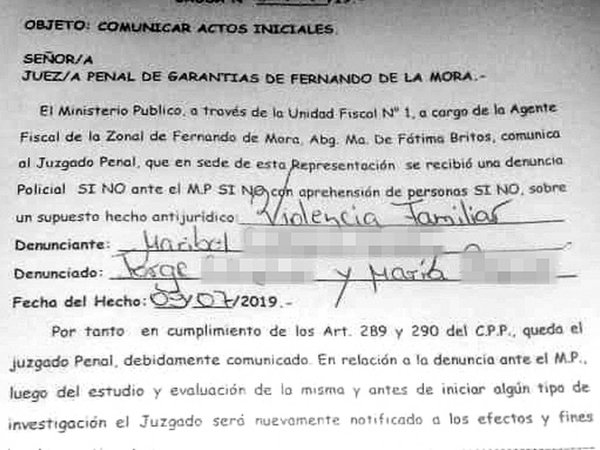 OBJETO: COMUNICAR ACTOS INICIALES.
SEÑOR/A
JUEZ/A PENAL DE GARANTIAS DE FERNANDO DE LA MORA.-
El Ministerio Publico, a través de la Unidad Fiscal N° 1, a cargo de la Agente
Fiscal de la Zonal de Fernando de Mora, Abg. Ma. De Fátima Britos, comunica
al Juzgado Penal, que en sede de esta Representación se recibió una denuncia
Policial SI NO ante el M.P SI NO con aprehensión de personas SI NO, sobre
un supuesto hecho antijurídico: Violencia Familiar
Denunciante: Maribel
Denunciado: Jorge y María
Fecha del Hecho: 09/07/2019.-
Por tanto en cumplimiento de los Art. 289 y 290 del C.P.P., queda el
juzgado Penal, debidamente comunicado. En relación a la denuncia ante el M.P.,
luego del estudio y evaluación de la misma y antes de iniciar algún tipo de
investigación el Juzgado será nuevamente notificado a los efectos y fines